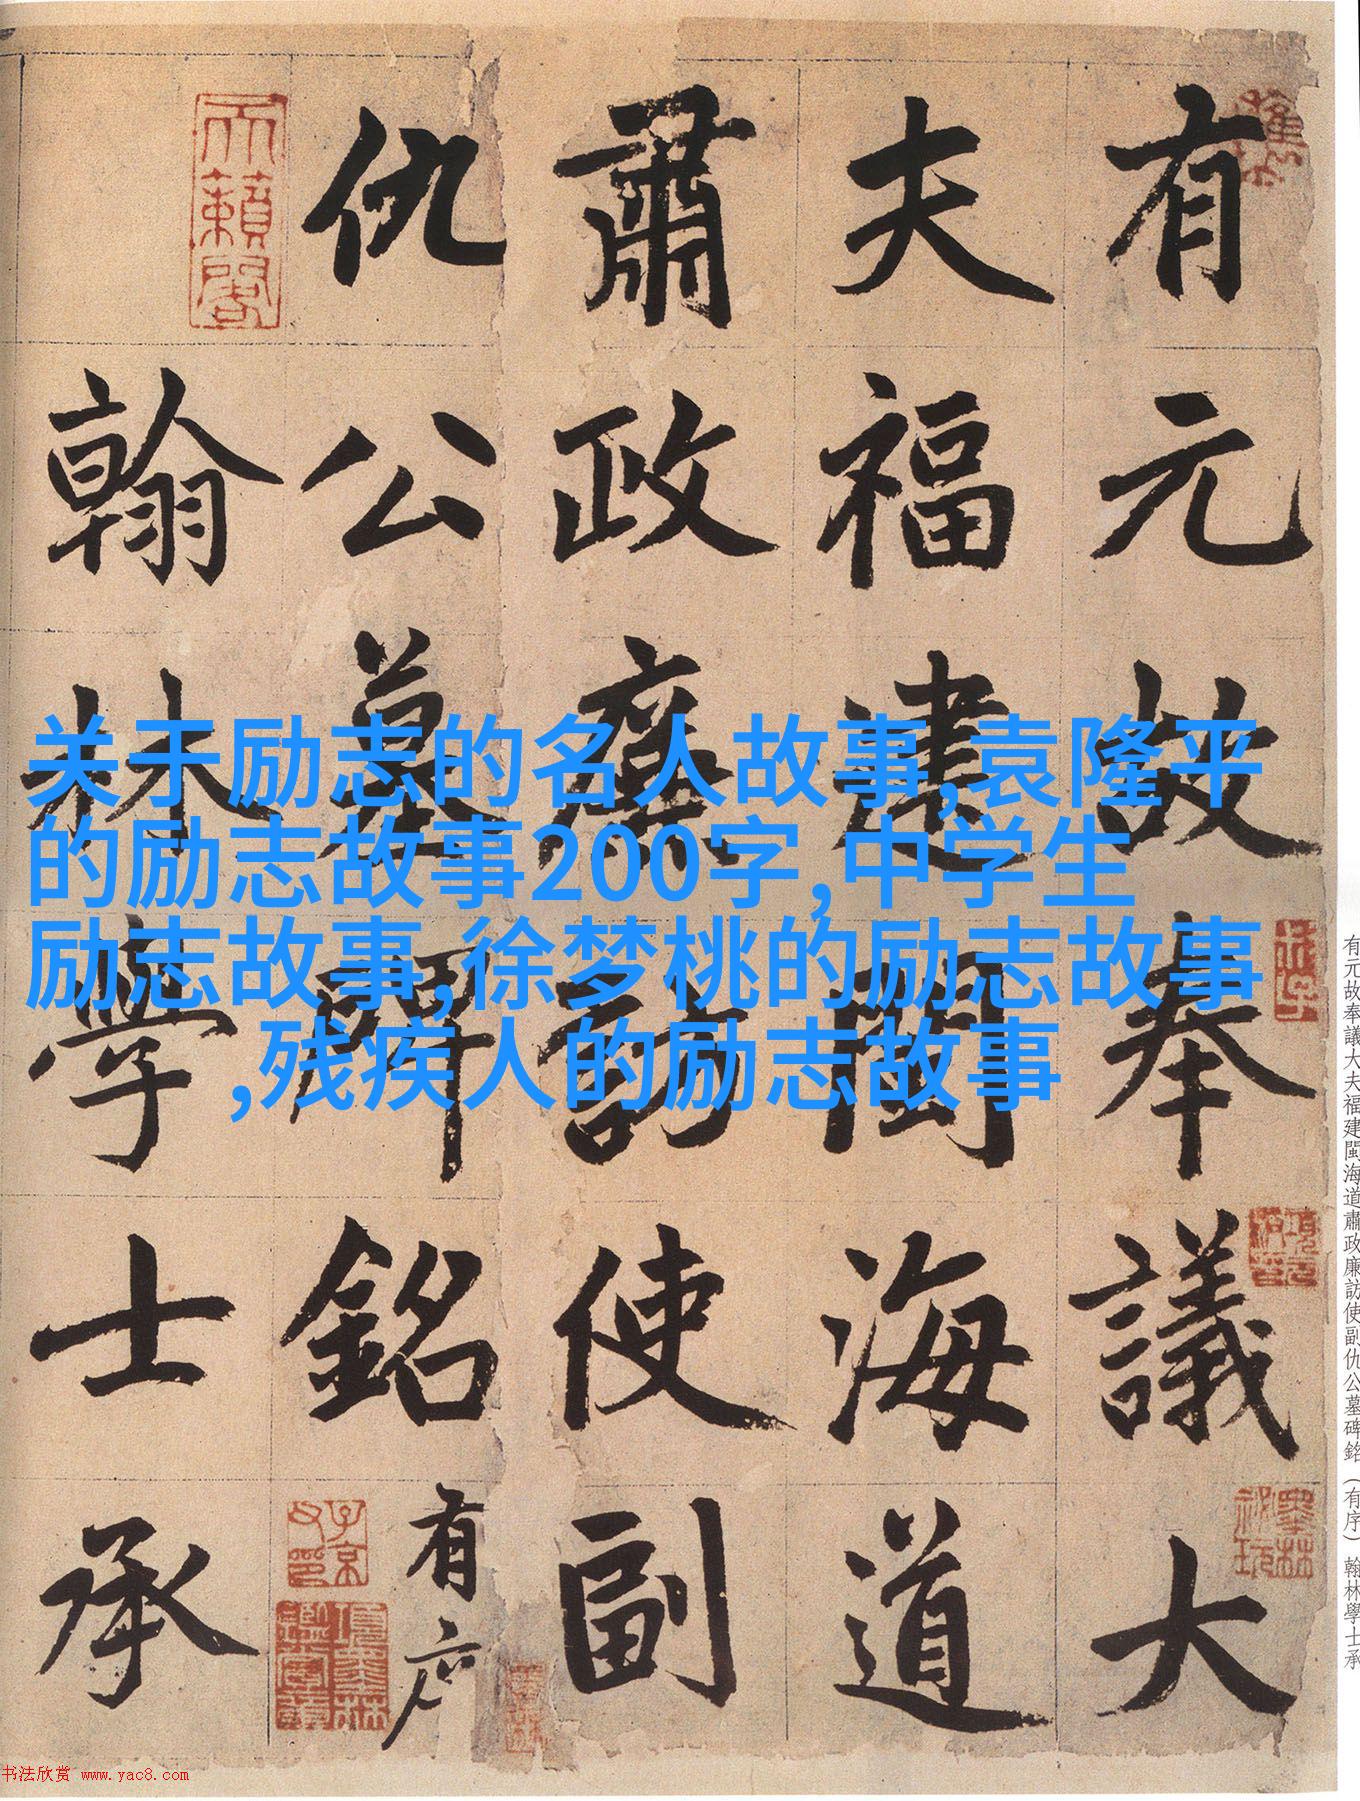 有元故奉議大
夫福建閩海道
肅政廉訪使副
仇公墓碑銘有序
翰林學士承
天籟閣
子京父印
項墨林鑑賞章
墨林祕玩
项元汴印
关于励志的名人故事,袁隆平
的励志故事200字,中学生
励志故事,徐梦桃的励志故事
,残疾人的励志故事
有元故奉議大夫福建閩海道肅政廉訪使副仇公墓碑銘（有序）翰林學士承
书法欣赏 www.yac8.com